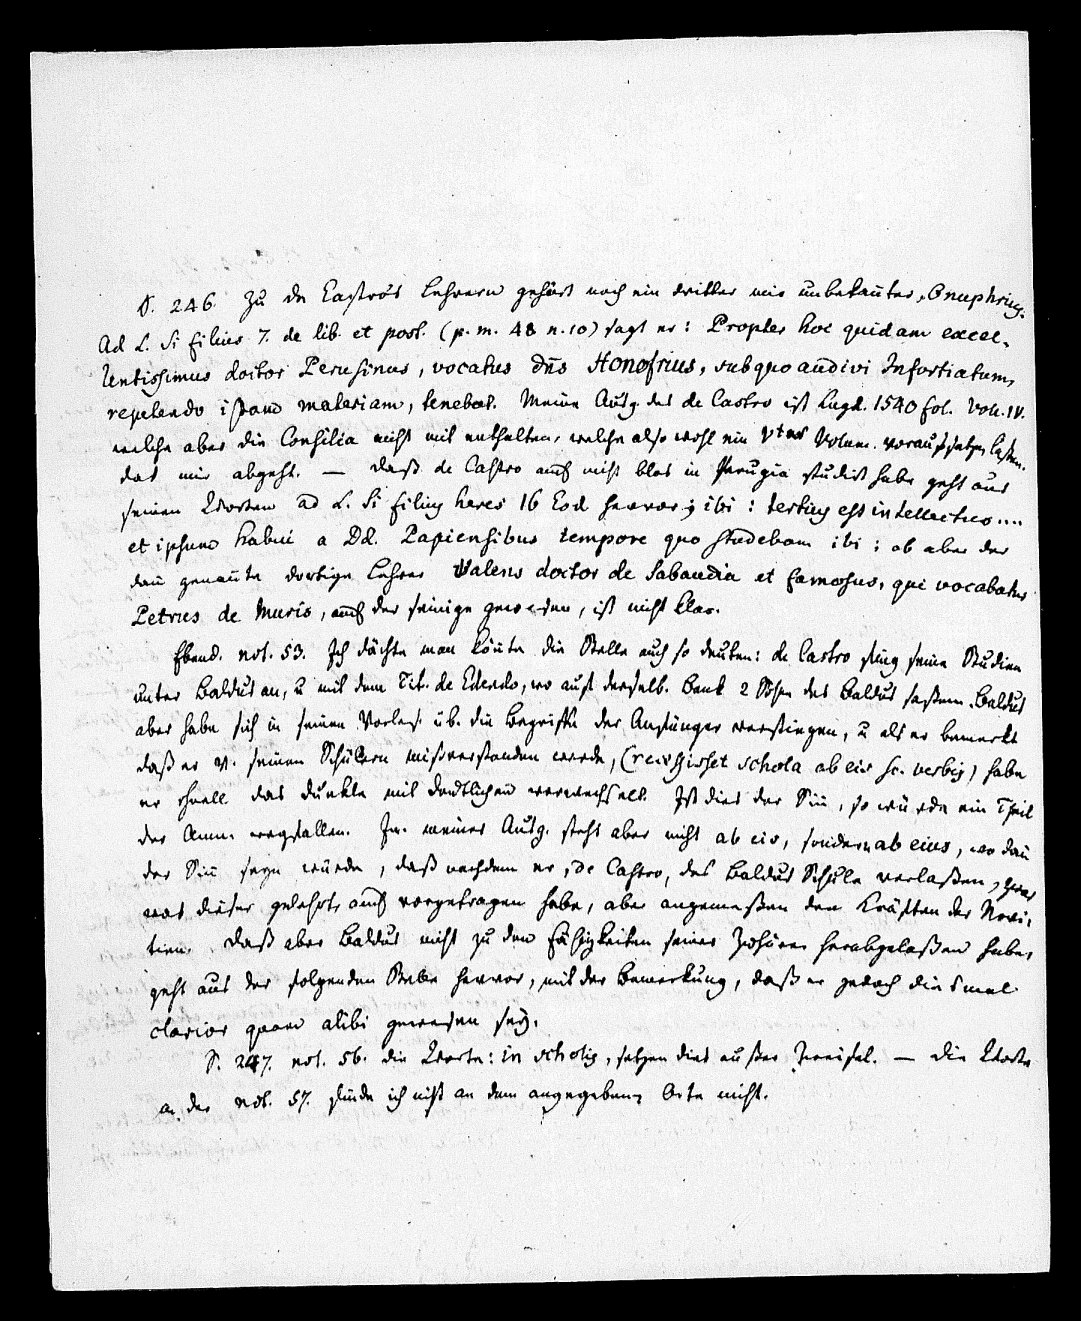 S. 246 zu de Castro's Lehrern gehört noch ein dritter mir unbekannter, Onuphrius.
Ad L. Si filius 7. de lib. et post. (p. m. 48 n. 10) sagt er: Propter hoc quidam excel-
lentissimus doctor Perusinus, vocatus dn̄s Honofrius, sub quo audivi Infortiatum,
repetendo istam materiam, tenebat. Meine Ausg. des de Castro ist Lugd. 1540 fol. Voll. IV.
welche aber die Consilia nicht mit enthalten, welche also wohl ein Vtes Volum. voraussetzen lassen.
das mir abgeht. — Daß de Castro auch nicht blos in Perugia studirt habe geht aus
seinen Worten ad L. Si filius heres 16 Eod hervor; ibi: tertius est intellectus ....
et ipsum habui a Dd. Papiensibus tempore quo studebam ibi; ob aber der
dañ genañte dortige Lehrer Valens doctor de Sabaudia et famosus, qui vocabatur
Petrus de Muris, auch der seinige gewesen, ist nicht klar.
Ebend. not. 53. Ich dächte man köñte die Stelle auch so deuten: de Castro fing seine Studien
unter Baldus an, u mit dem Tit. de Edendo, wo auf derselb. Bank 2 Söhne des Baldus saßen. Baldus
aber habe sich in seinen Vorles. üb. die Begriffe der Anfänger verstiegen, u als er bemerkt
daß er v. seinen Schülern mißverstanden werde, (recessisset schola ab eis sc. verbis) habe
er schnell das dunkle mit deutlichen verwechselt. Ist dies der Siñ, so würde ein Theil
der Anm. wegfallen. In meiner Ausg. steht aber nicht ab eis, sondern ab eius, wo dañ
der Siñ seyn würde, daß nachdem er, de Castro, des Baldus Schule verlaßen, zwar
was dieser gelehrt, auch vorgetragen habe, aber angemeßen den Kräften der Novi-
tien. Daß aber Baldus nicht zu den Fähigkeiten seiner Zuhörer herabgelaßen habe,
geht aus der folgenden Stelle hervor, mit der Bemerkung, daß er jedoch diesmal
clarior quam alibi gewesen sey.
S. 247. not. 56. die Worte: in scholis, setzen dies außer Zweifel. — Die Worte
a. der not. 57. finde ich nicht an dem angegebenen Orte nicht.